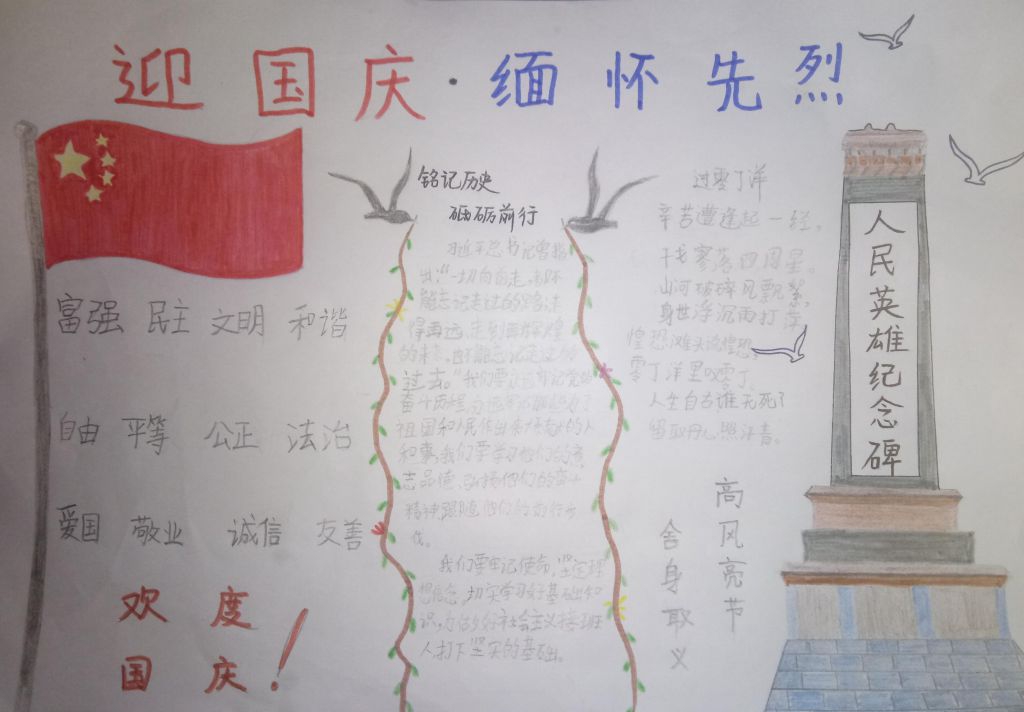 迎国庆·缅怀先烈
富强 民主 文明 和谐
自由 平等 公正 法治
爱国 敬业 诚信 友善
欢度
国庆!
铭记历史
砥砺前行
习近平总书记曾指
出:"一切向前走,都不
能忘记走过的路;走
得再远、走到再辉煌
的未来,也不能忘记走过的
过去。"我们要永远牢记党的
奋斗历程,
祖国和人民作出杰出贡献的人
和事,我们要学习他们的
志品德、他们的奋斗
精神跟随他们的前行步
伐。
我们要牢记使命,坚定理
想信念,切实学习好基础知
识,为做好社会主义接班
人打下坚实的基础。
过零丁洋
辛苦遭逢起一经,
干戈寥落四周星。
山河破碎风飘絮,
身世浮沉雨打萍
惶恐滩头说惶恐,
零丁洋里叹零丁。
人生自古谁无死?
留取丹心照汗青。
高风亮节
舍身取义
人民英雄纪念碑